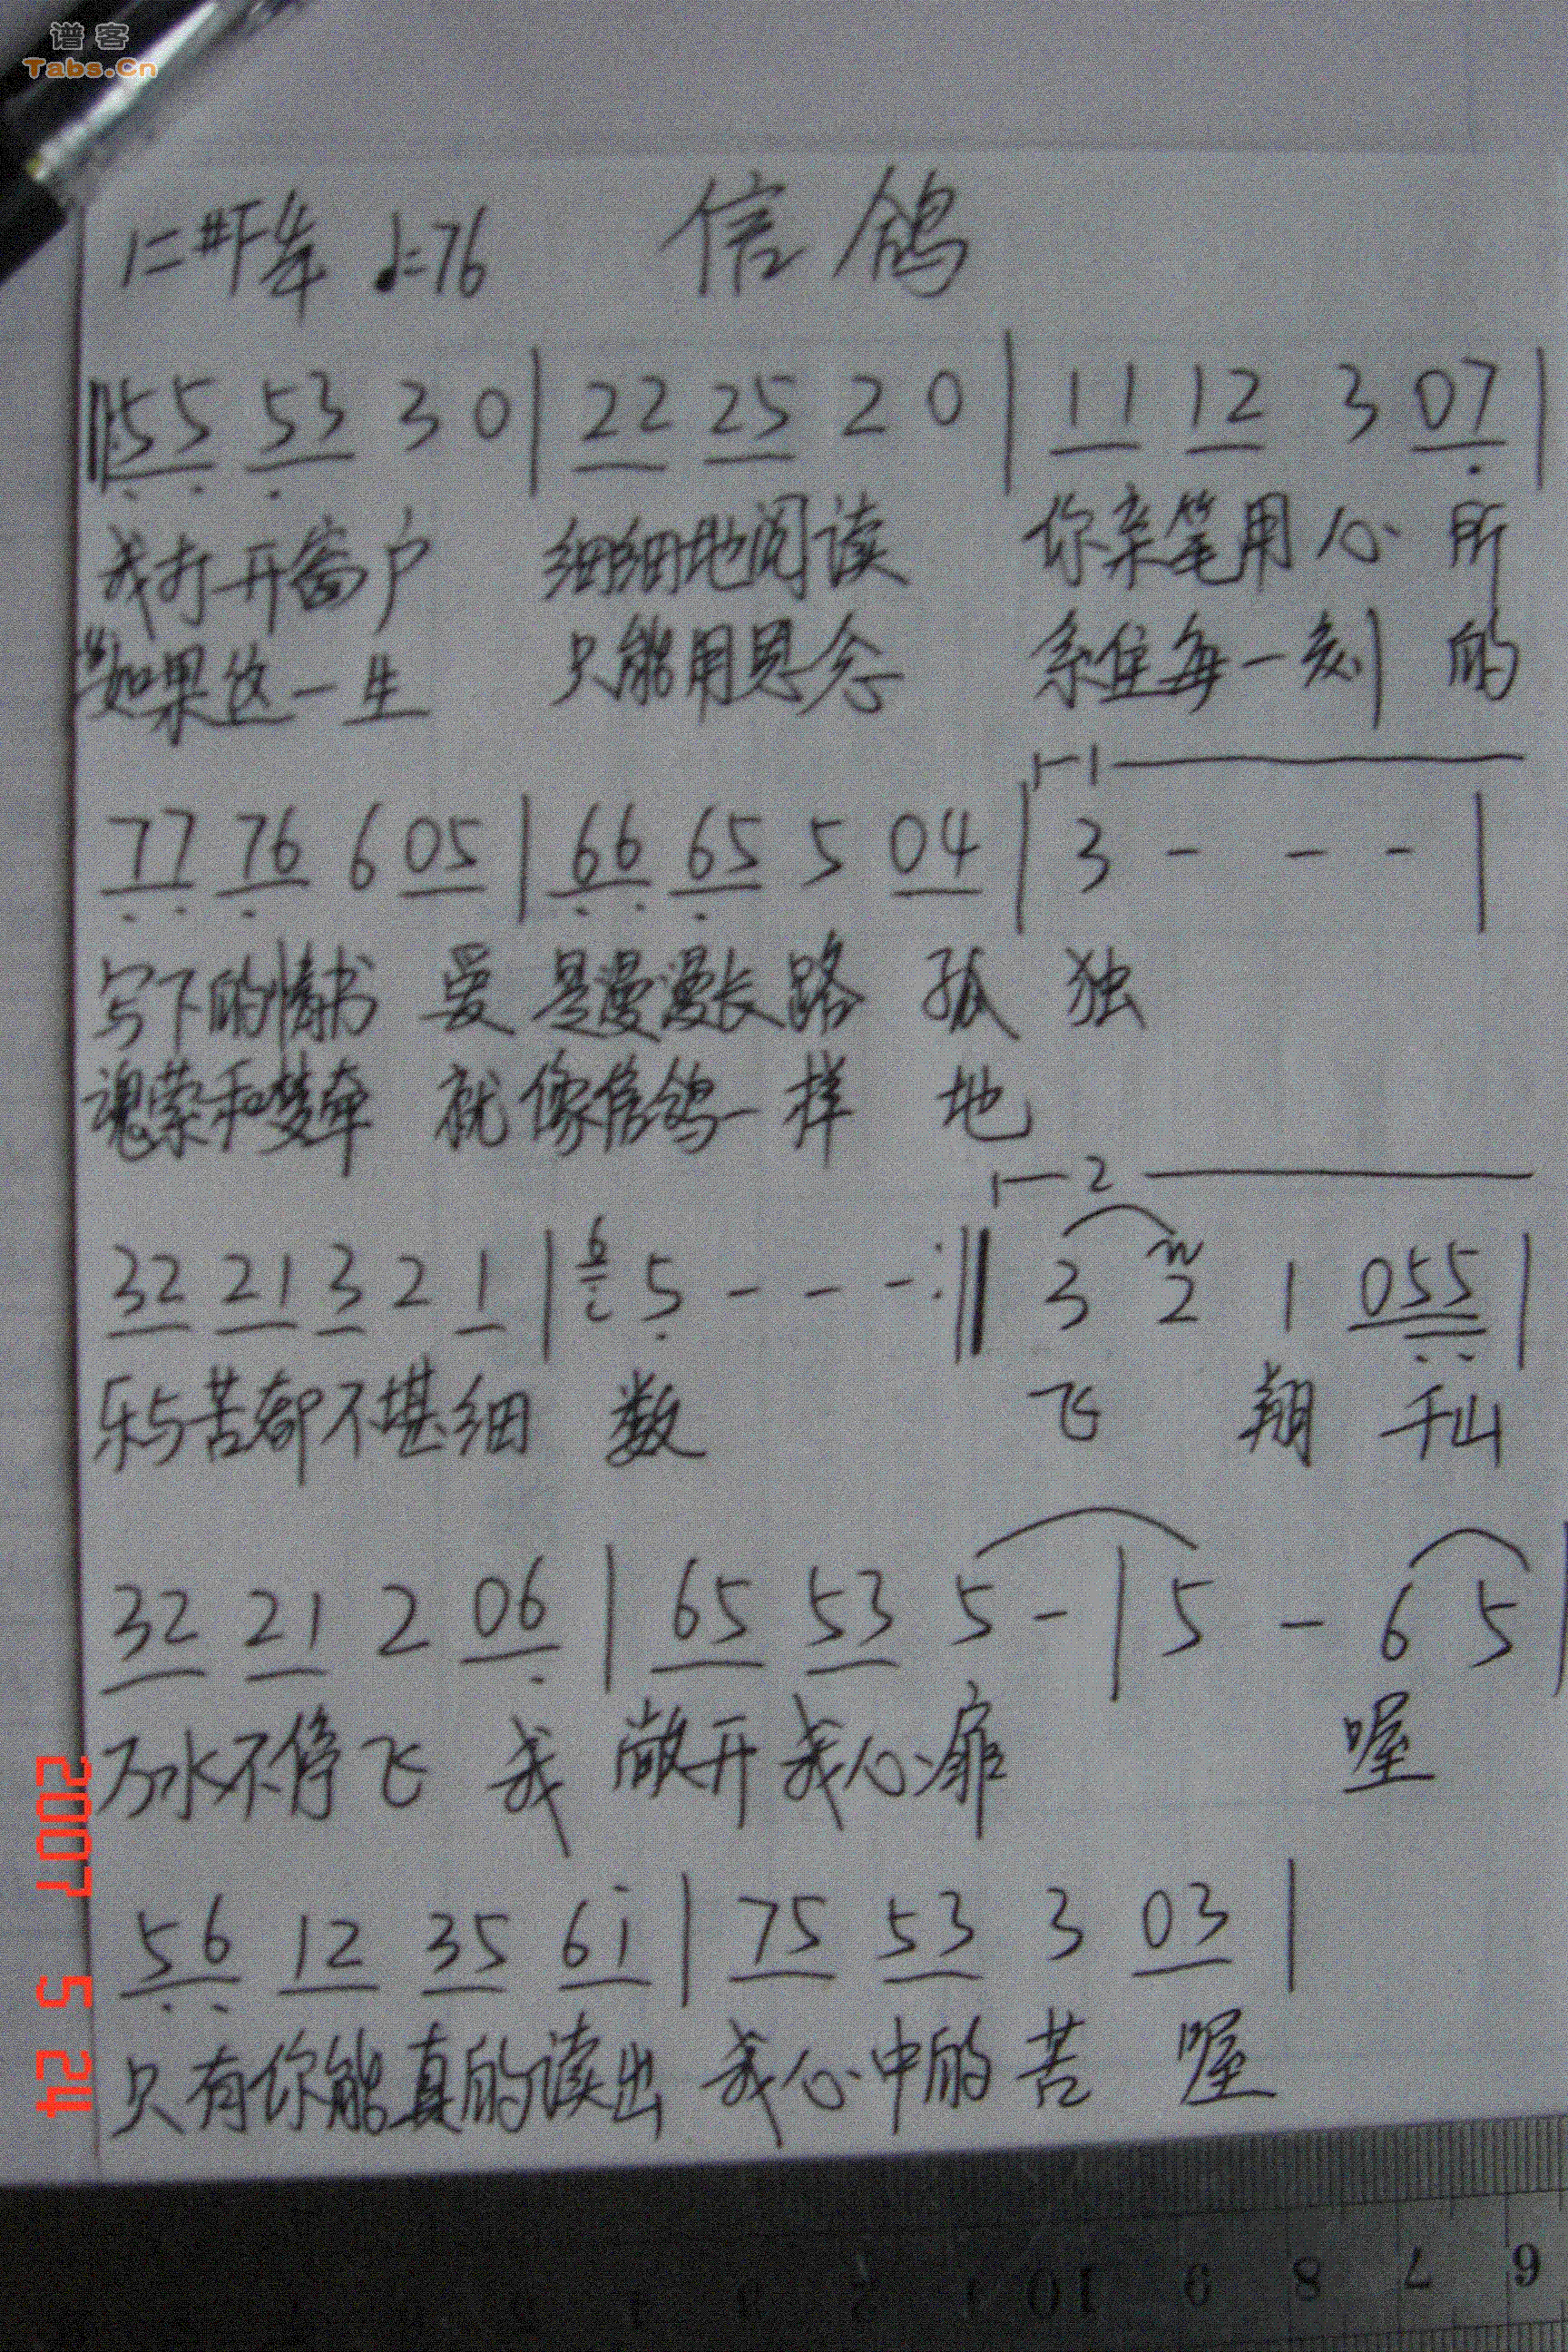 谱客
Tabs.Cn
1=#F 4/4 ♩=76 信鸽
‖:55 53 3 0 | 22 25 2 0 | 11 12 3 07 |
我打开窗户 细细地阅读 你亲笔用心 所
如果这一生 只能用思念 系住每一刻 的
1
77 76 6 05 | 66 65 5 04 | 3 - - - |
写下的情书 要 是漫漫长路 孤 独
魂萦和梦牵 就 像信鸽一样 地
2
32 21 3 2 1 | 6 5 - - - :‖ 3 2 1 055 |
乐与苦都不堪细 数 飞 翔 千山
32 21 2 06 | 65 53 5 - | 5 - 6 5 |
万水不停飞 我 敞开我心扉 喔
56 12 35 61 | 75 53 3 03 |
只有你能真的读出 我心中的苦 喔
2007 5 24
10 9 8 7 6